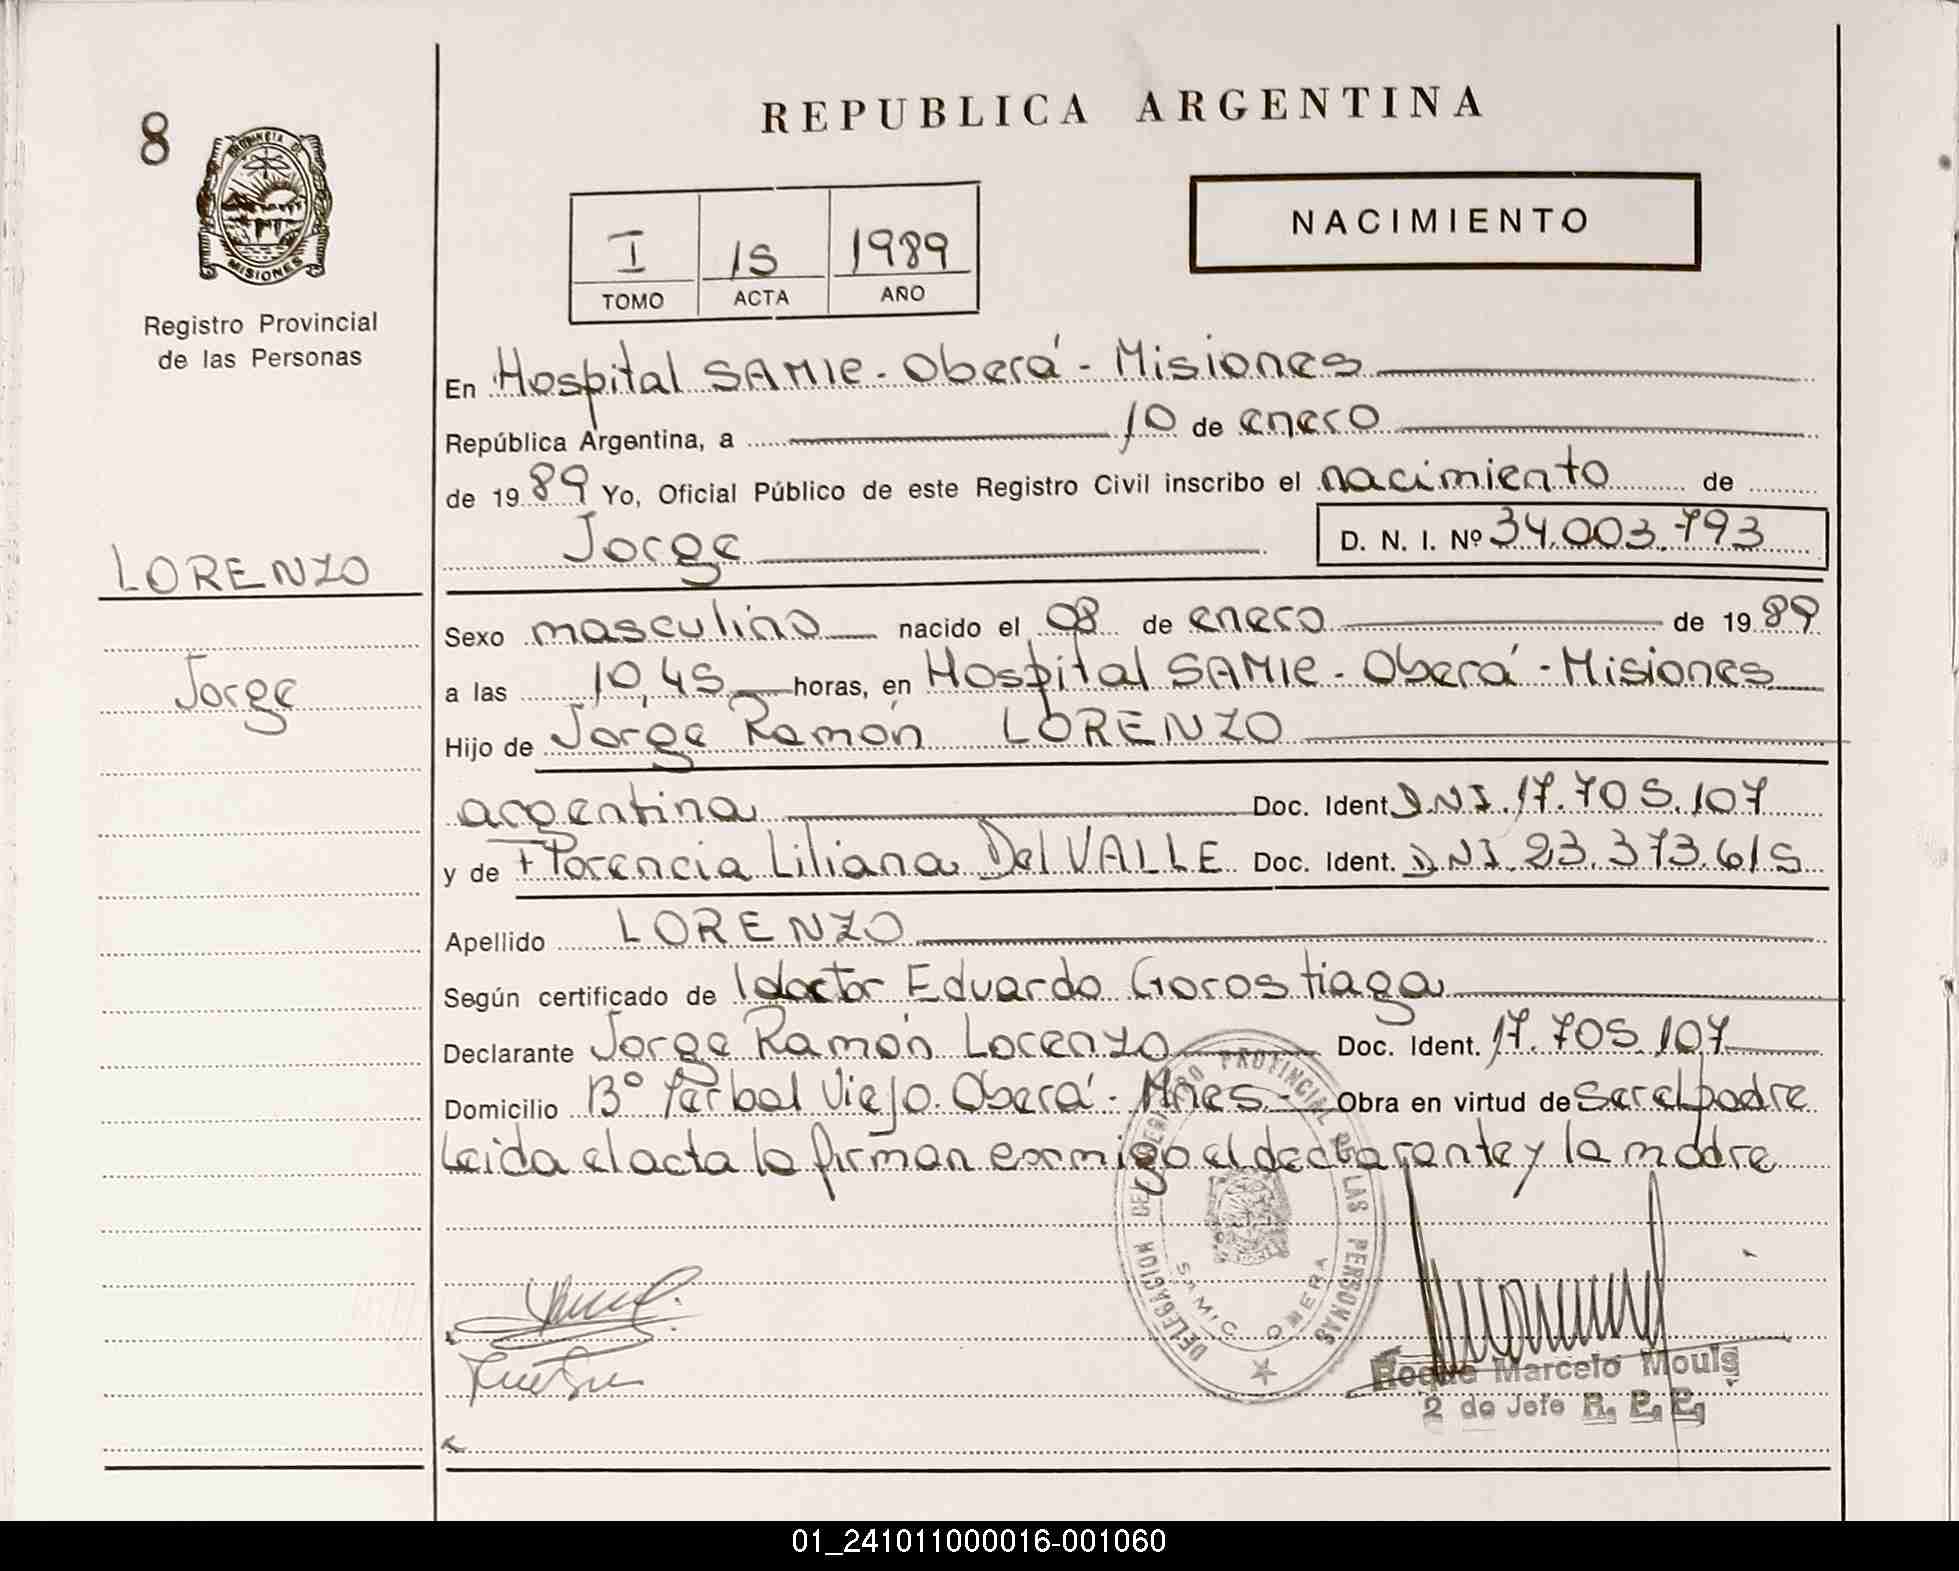 REPUBLICA ARGENTINA
8
PROVINCIA DE
MISIONES
Registro Provincial
de las Personas
NACIMIENTO
I 15 1989
TOMO ACTA AÑO
En Hospital SAMIC - Oberá - Misiones
República Argentina, a 10 de enero
de 1989 Yo, Oficial Público de este Registro Civil inscribo el nacimiento de
Jorge D. N. I. Nº 34.003.793
LORENZO
Jorge
Sexo masculino nacido el 08 de enero de 1989
a las 10,45 horas, en Hospital SAMIC - Oberá - Misiones
Hijo de Jorge Ramón LORENZO
argentina Doc. Ident. DNI. 17.705.107
y de Florencia Liliana Del VALLE Doc. Ident. DNI. 23.373.615
Apellido LORENZO
Según certificado de doctor Eduardo Gorostiaga
Declarante Jorge Ramón Lorenzo Doc. Ident. 17.705.107
Domicilio Bº Yerbal Viejo. Oberá - Mnes - Obra en virtud de ser el padre
Leida el acta la firman conmigo el declarante y la madre
DELEGACION DEL REGISTRO PROVINCIAL DE LAS PERSONAS
SAMIC OBERA
Roque Marcelo
2 do Jefe R. P. P.
01_241011000016-001060